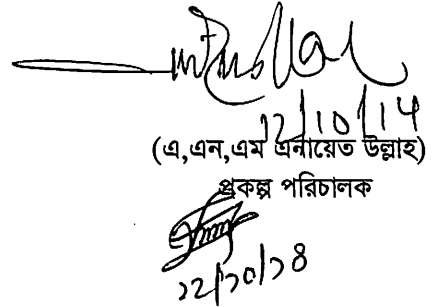 12/10/14
(এ,এন,এম এনায়েত উল্লাহ)
প্রকল্প পরিচালক
১২/১০/১৪